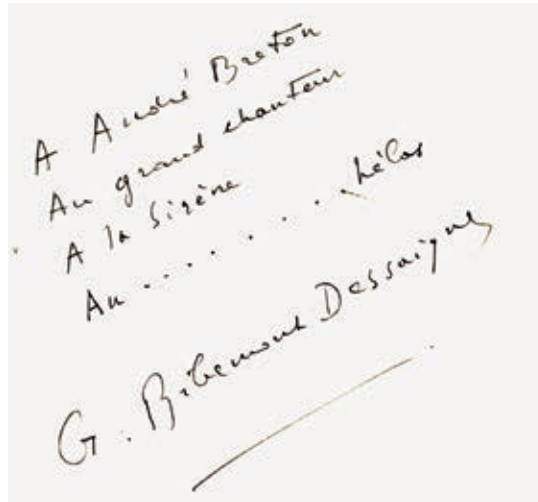 A André Breton
Au grand chanteur
A la Sirène
Au . . . . . . . . . hélas
G. Ribemont Dessaignes